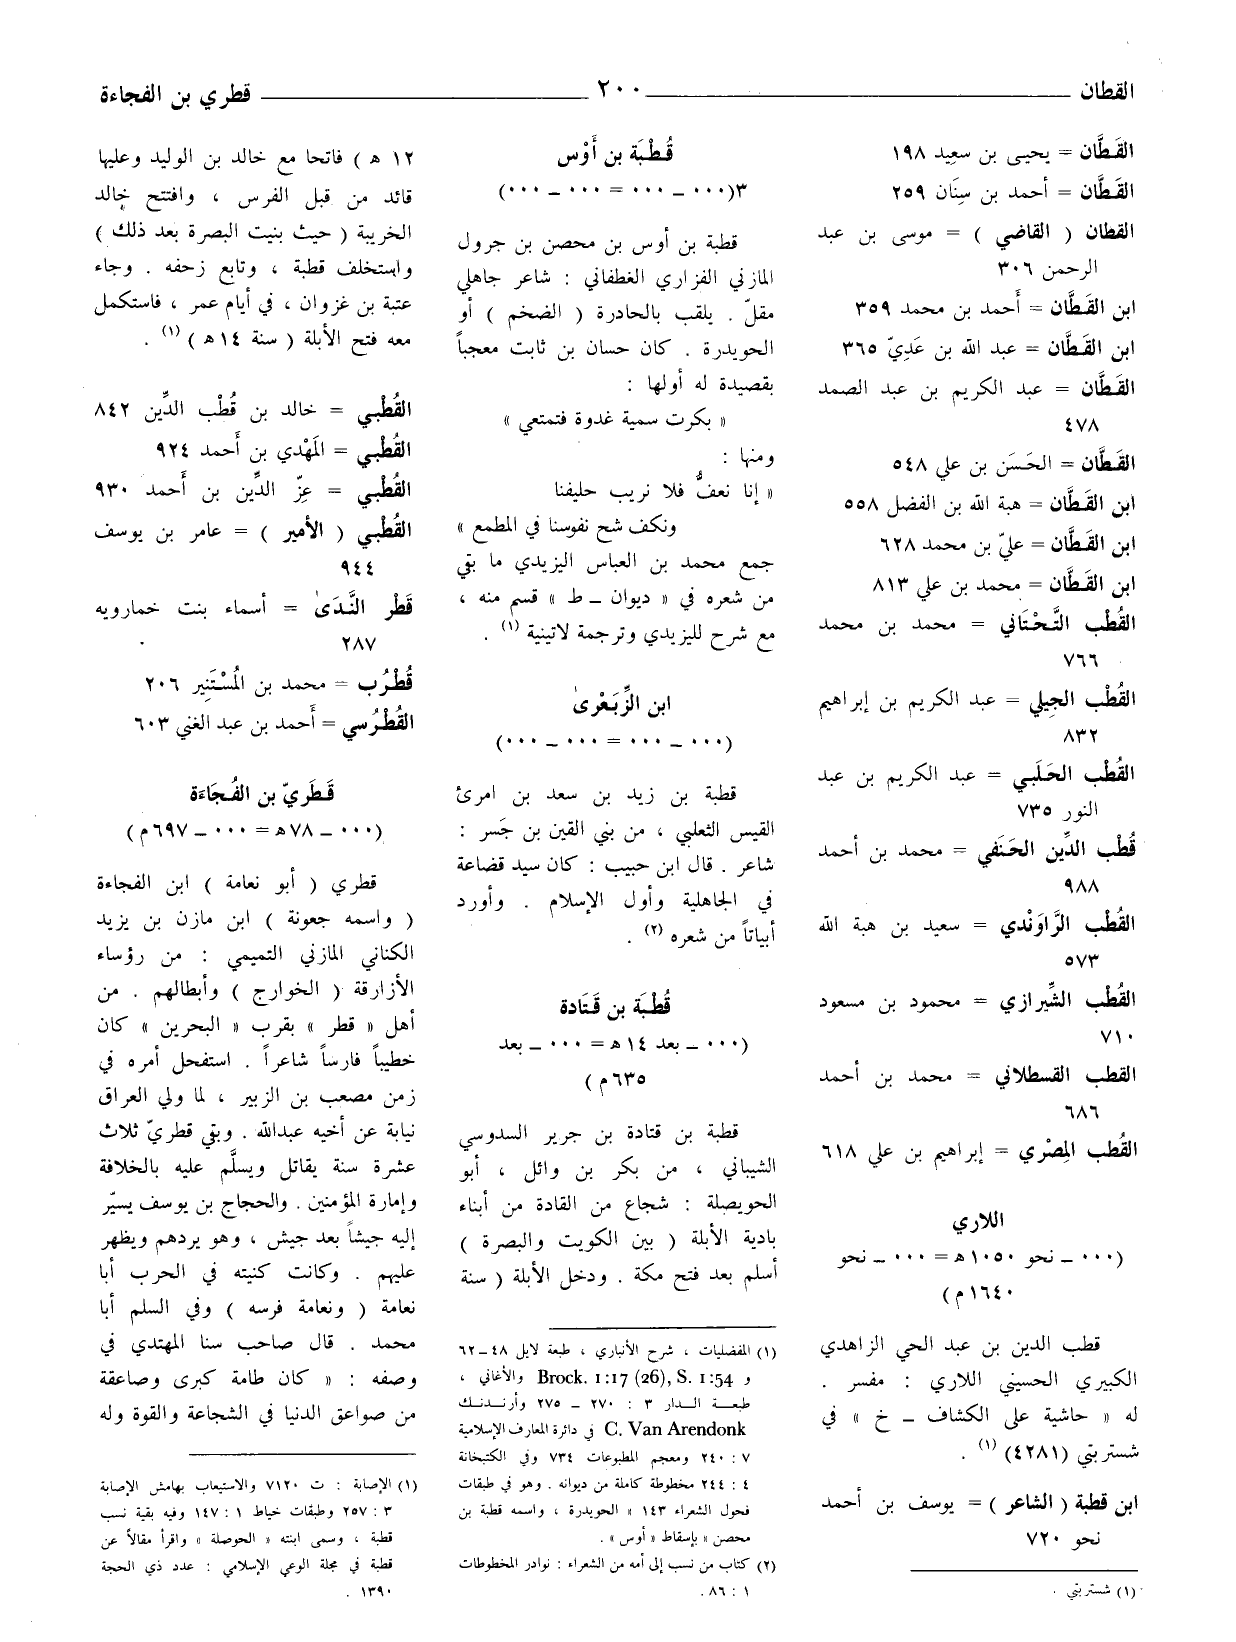 القطان ـــــ ٢٠٠ ـــــ قطري بن الفجاءة
القَطَّان = يحيى بن سعيد ١٩٨
القَطَّان = أحمد بن سِنَان ٢٥٩
القطان ( القاضي ) = موسى بن عبد
الرحمن ٣٠٦
ابن القَطَّان = أَحمد بن محمد ٣٥٩
ابن القَطَّان = عبد الله بن عَدِيّ ٣٦٥
القَطَّان = عبد الكريم بن عبد الصمد
٤٧٨
القَطَّان = الحَسَن بن علي ٥٤٨
ابن القَطَّان = هبة الله بن الفضل ٥٥٨
ابن القَطَّان = عليّ بن محمد ٦٢٨
ابن القَطَّان = محمد بن علي ٨١٣
القُطْب التَّحْتَاني = محمد بن محمد
٧٦٦
القُطْب الجِيلي = عبد الكريم بن إبراهيم
٨٣٢
القُطْب الحَلَبي = عبد الكريم بن عبد
النور ٧٣٥
قُطْب الدِّين الحَنَفي = محمد بن أحمد
٩٨٨
القُطْب الرَّاوَنْدي = سعيد بن هبة الله
٥٧٣
القُطْب الشِّيرازي = محمود بن مسعود
٧١٠
القطب القسطلاني = محمد بن أحمد
٦٨٦
القُطب المِصْري = إبراهيم بن علي ٦١٨
اللاري
(٠٠٠ ـ نحو ١٠٥٠ هـ = ٠٠٠ ـ نحو
١٦٤٠ م)
قطب الدين بن عبد الحي الزاهدي
الكبيري الحسيني اللاري : مفسر .
له « حاشية على الكشاف ـ خ » في
شستربتي (٤٢٨١) (١) .
ابن قطبة ( الشاعر ) = يوسف بن أحمد
نحو ٧٢٠
(١) شستربتي .
قُطْبَة بن أَوْس
٣(٠٠٠ ـ ٠٠٠ = ٠٠٠ ـ ٠٠٠)
قطبة بن أوس بن محصن بن جرول
المازني الفزاري الغطفاني : شاعر جاهلي
مقلّ . يلقب بالحادرة ( الضخم ) أو
الحويدرة . كان حسان بن ثابت معجباً
بقصيدة له أولها :
« بكرت سمية غدوة فتمتعي »
ومنها :
« إنا نعفُّ فلا نريب حليفنا
ونكف شح نفوسنا في المطمع »
جمع محمد بن العباس اليزيدي ما بقي
من شعره في « ديوان ـ ط » قسم منه ،
مع شرح لليزيدي وترجمة لاتينية (١) .
ابن الزِّبَعْرىٰ
(٠٠٠ ـ ٠٠٠ = ٠٠٠ ـ ٠٠٠)
قطبة بن زيد بن سعد بن امرئ
القيس الثعلبي ، من بني القين بن جَسر :
شاعر . قال ابن حبيب : كان سيد قضاعة
في الجاهلية وأول الإسلام . وأورد
أبياتاً من شعره (٢) .
قُطْبَة بن قَتَادة
(٠٠٠ ـ بعد ١٤ هـ = ٠٠٠ ـ بعد
٦٣٥ م)
قطبة بن قتادة بن جرير السدوسي
الشيباني ، من بكر بن وائل ، أبو
الحويصلة : شجاع من القادة من أبناء
بادية الأبلة ( بين الكويت والبصرة )
أسلم بعد فتح مكة . ودخل الأبلة ( سنة
(١) المفضليات ، شرح الأنباري ، طبعة لايل ٤٨ـ٦٢
و Brock. 1:17 (26), S. 1:54 والأغاني ،
طبعة الدار ٣ : ٢٧٠ ـ ٢٧٥ وأرندنك
C. Van Arendonk في دائرة المعارف الإسلامية
٧ : ٢٤٠ ومعجم المطبوعات ٧٣٤ وفي الكتبخانة
٤ : ٢٤٤ مخطوطة كاملة من ديوانه . وهو في طبقات
فحول الشعراء ١٤٣ « الحويدرة ، واسمه قطبة بن
محصن » بإسقاط « أوس » .
(٢) كتاب من نسب إلى أمه من الشعراء : نوادر المخطوطات
١ : ٨٦ .
١٢ هـ ) فاتحا مع خالد بن الوليد وعليها
قائد من قبل الفرس ، وافتتح خالد
الخريبة ( حيث بنيت البصرة بعد ذلك )
واستخلف قطبة ، وتابع زحفه . وجاء
عتبة بن غزوان ، في أيام عمر ، فاستكمل
معه فتح الأبلة ( سنة ١٤ هـ ) (١) .
القُطْبي = خالد بن قُطْب الدِّين ٨٤٢
القُطْبي = المَهْدي بن أَحمد ٩٢٤
القُطْبي = عِزّ الدِّين بن أَحمد ٩٣٠
القُطْبي ( الأمير ) = عامر بن يوسف
٩٤٤
قَطْر النَّدَىٰ = أسماء بنت خمارويه
٢٨٧
قُطْرُب = محمد بن المُسْتَنِير ٢٠٦
القُطْرُسي = أَحمد بن عبد الغني ٦٠٣
قَطَريّ بن الفُجَاءَة
(٠٠٠ ـ ٧٨ هـ = ٠٠٠ ـ ٦٩٧ م)
قطري ( أبو نعامة ) ابن الفجاءة
( واسمه جعونة ) ابن مازن بن يزيد
الكناني المازني التميمي : من رؤساء
الأزارقة ( الخوارج ) وأبطالهم . من
أهل « قطر » بقرب « البحرين » كان
خطيباً فارساً شاعراً . استفحل أمره في
زمن مصعب بن الزبير ، لما ولي العراق
نيابة عن أخيه عبدالله . وبقي قطريّ ثلاث
عشرة سنة يقاتل ويسلَّم عليه بالخلافة
وإمارة المؤمنين . والحجاج بن يوسف يسيّر
إليه جيشاً بعد جيش ، وهو يردهم ويظهر
عليهم . وكانت كنيته في الحرب أبا
نعامة ( ونعامة فرسه ) وفي السلم أبا
محمد . قال صاحب سنا المهتدي في
وصفه : « كان طامة كبرى وصاعقة
من صواعق الدنيا في الشجاعة والقوة وله
(١) الإصابة : ت ٧١٢٠ والاستيعاب بهامش الإصابة
٣ : ٢٥٧ وطبقات خياط ١ : ١٤٧ وفيه بقية نسب
قطبة ، وسمى ابنته « الحوصلة » واقرأ مقالاً عن
قطبة في مجلة الوعي الإسلامي : عدد ذي الحجة
١٣٩٠ .